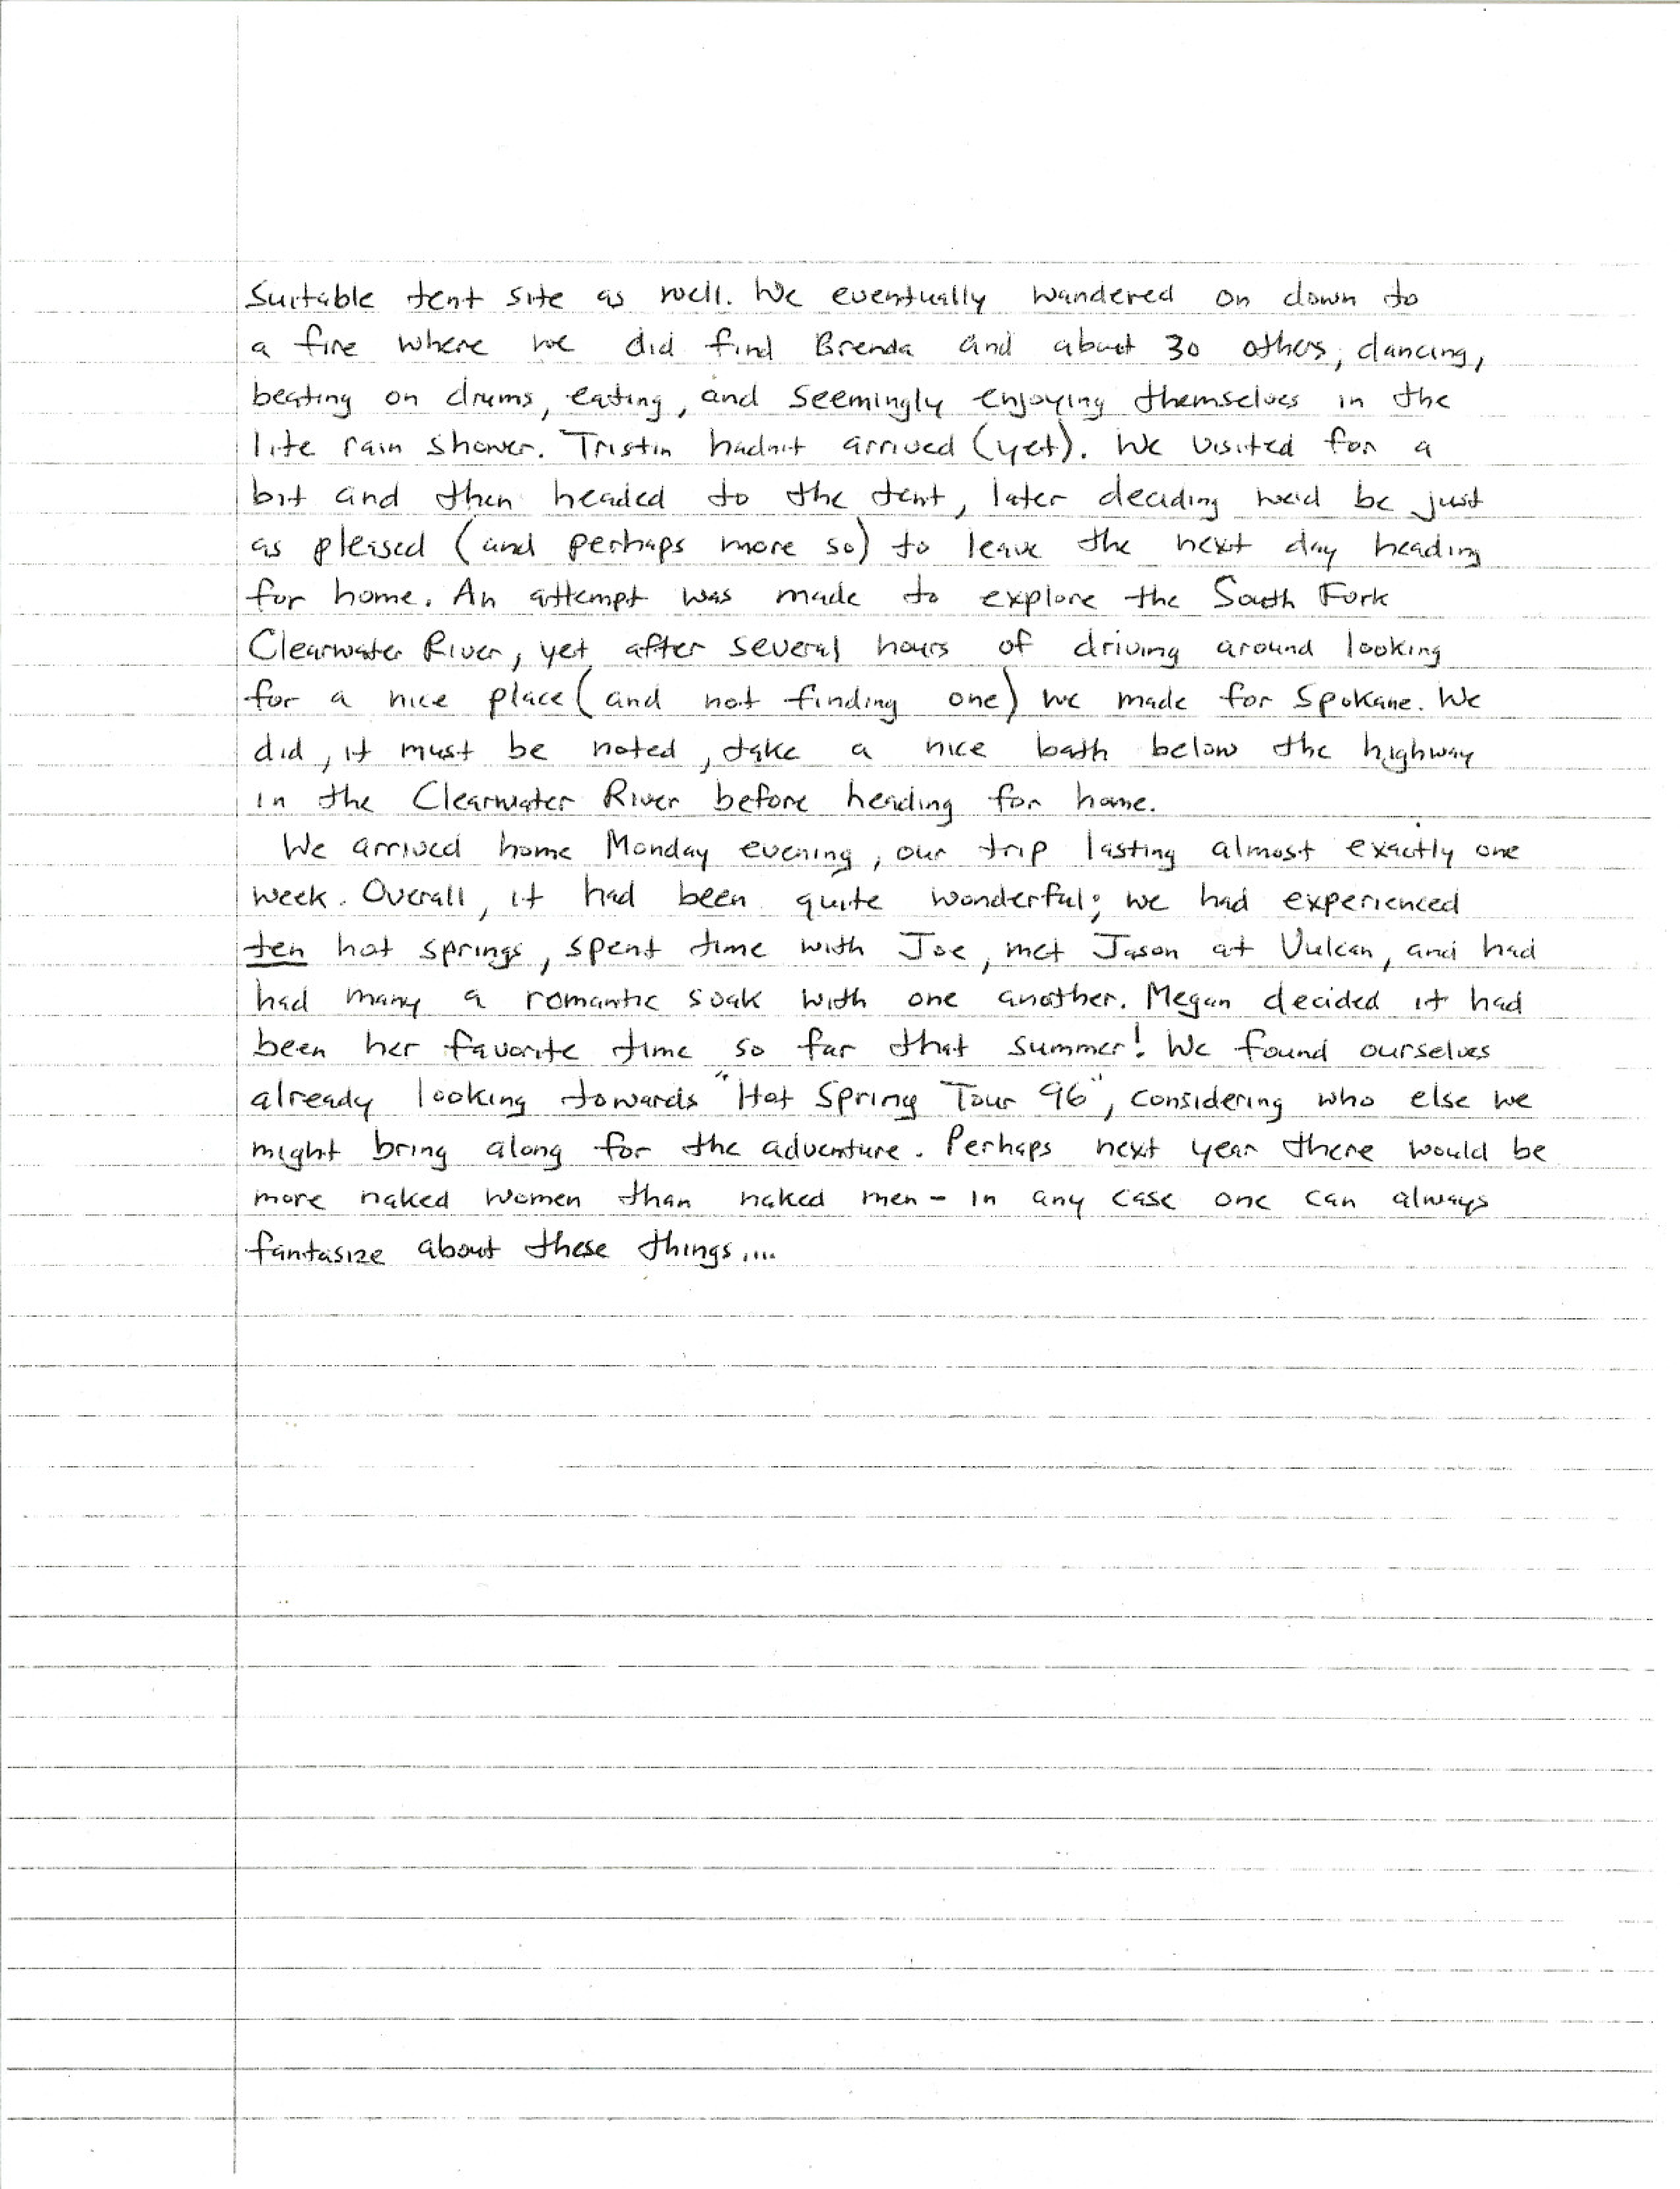 Suitable tent site as well. We eventually wandered on down to
a fire where we did find Brenda and about 30 others, dancing,
beating on drums, eating, and seemingly enjoying themselves in the
lite rain shower. Tristin hadn't arrived (yet). We visited for a
bit and then headed to the tent, later deciding we'd be just
as pleased (and perhaps more so) to leave the next day heading
for home. An attempt was made to explore the South Fork
Clearwater River, yet after several hours of driving around looking
for a nice place (and not finding one) we made for Spokane. We
did, it must be noted, take a nice bath below the highway
in the Clearwater River before heading for home.
We arrived home Monday evening, our trip lasting almost exactly one
week. Overall, it had been quite wonderful; we had experienced
ten hot springs, spent time with Joe, met Jason at Vulcan, and had
had many a romantic soak with one another. Megan decided it had
been her favorite time so far that summer! We found ourselves
already looking towards "Hot Spring Tour 96", considering who else we
might bring along for the adventure. Perhaps next year there would be
more naked women than naked men - in any case one can always
fantasize about these things....